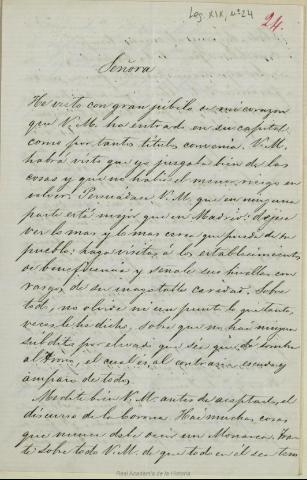 Leg. XIX, nº 24
24.
Señora
He visto con gran jubilo de mi corazon
que V. M. ha entrado en su capital
como por tantos titulos convenia. V. M.
habrá visto que yo juzgaba bien de las
cosas y que no habia el menor riesgo en
volver. Persuadase V. M. que en ninguna
parte está mejor que en Madrid: dejese
ver lo mas y lo mas cerca que pueda de su
pueblo, haga visitas á los establecimientos
de beneficencia y señale sus huellas con
rasgos de su inagotable caridad. Sobre
todo, no olvide ni un punto lo que tantas
veces le he dicho, sobre que no hai ningun
subdito por elevado que sea que dé sombra
al Trono, el cual es al contrario escudo y
amparo de todos.
Medite bien V. M. antes de aceptarle, el
discurso de la Corona. Hai muchas cosas
que nunca debe decir un Monarca.
sobre todo V. M. de que todo en él sea
Real Academia de la Historia